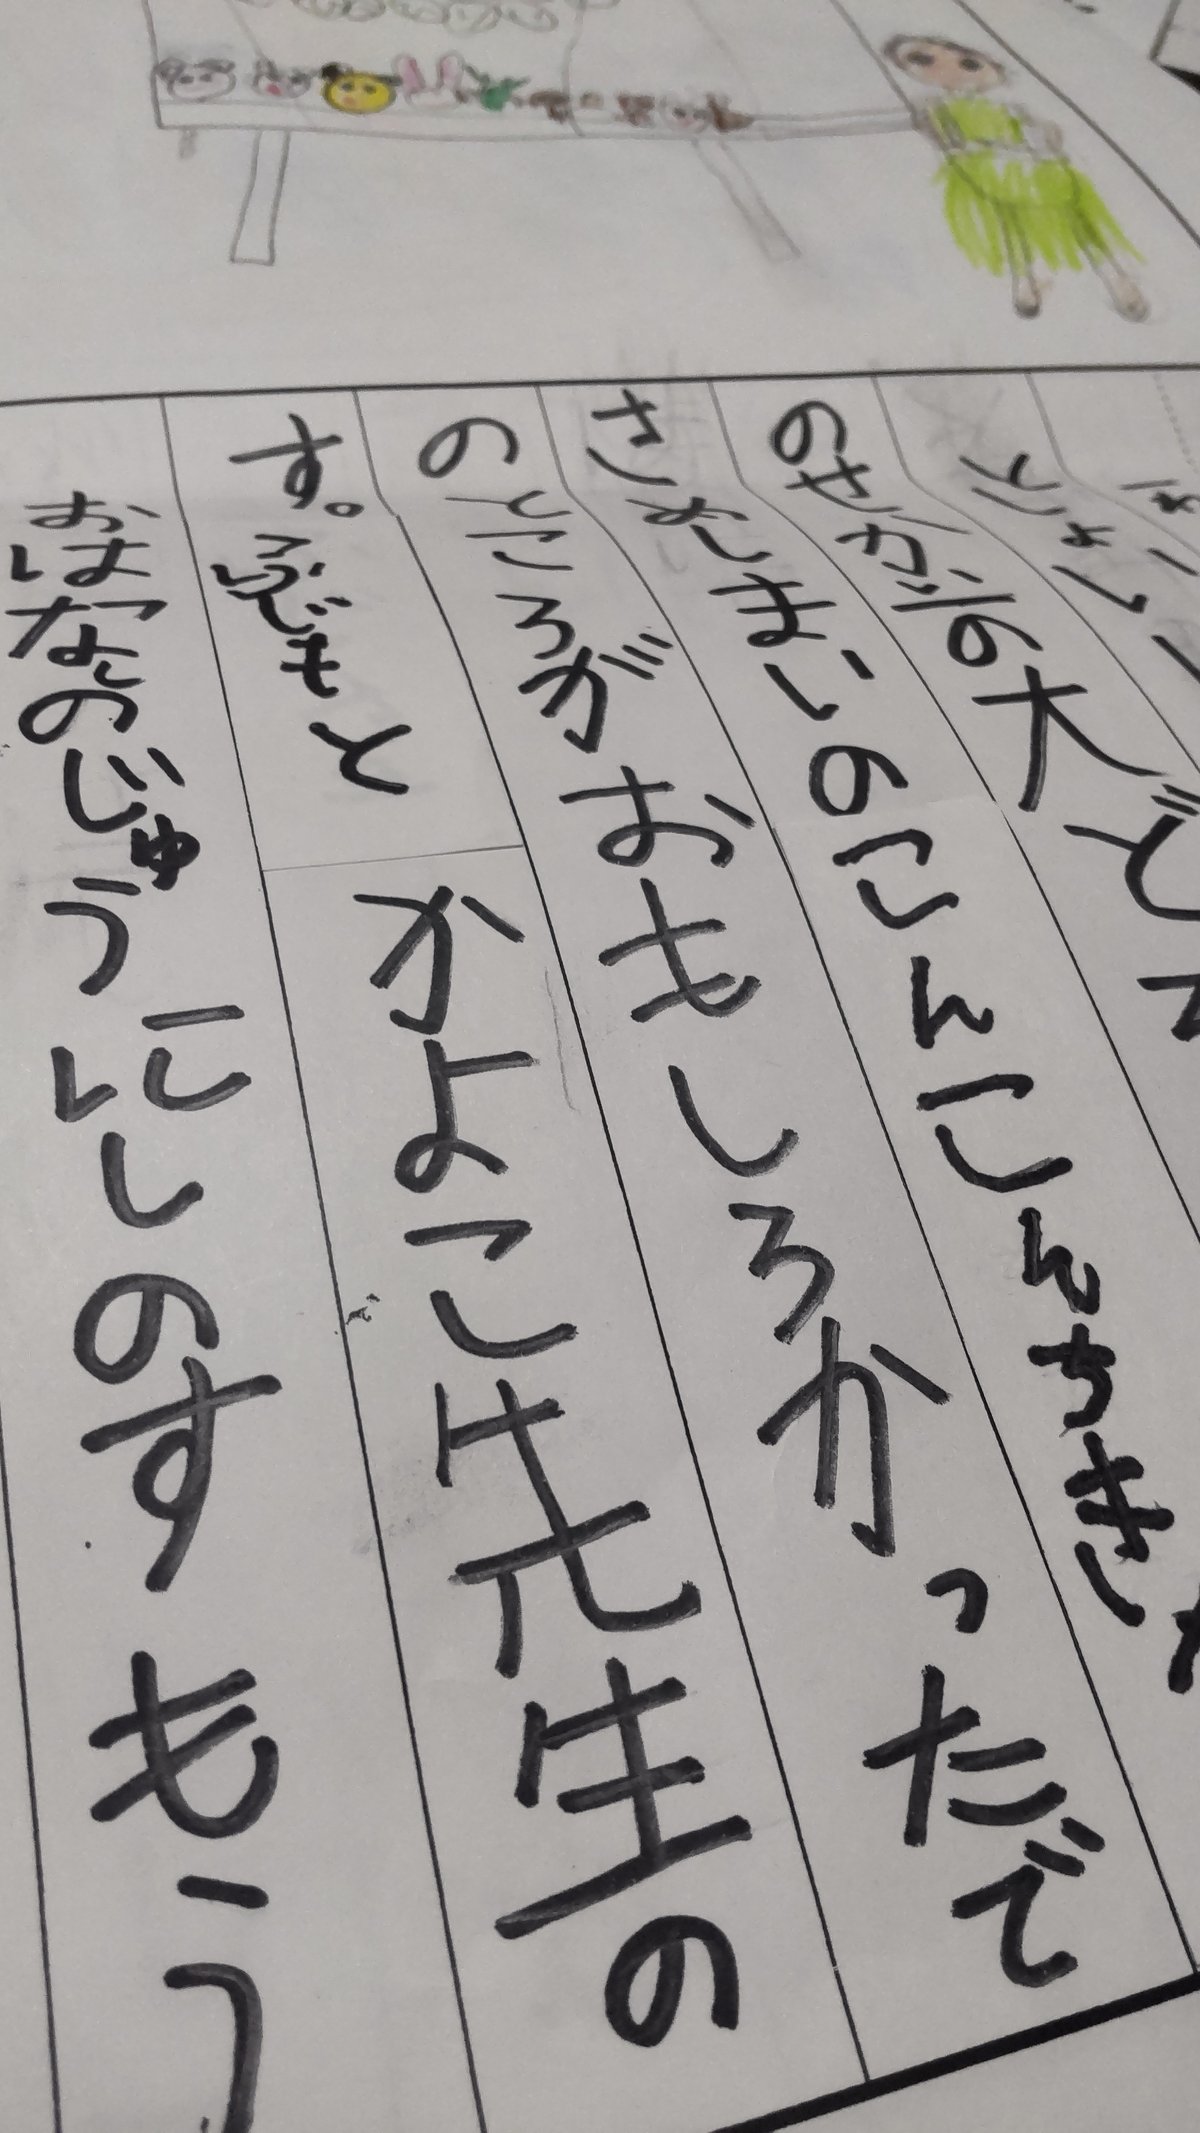 とこよい
のせかいの大どて
さましまいのこんこんちき
のところがおもしろかっただで
す。ぶどもと
かよこ先生の
おはなのじゅうにしのすもう